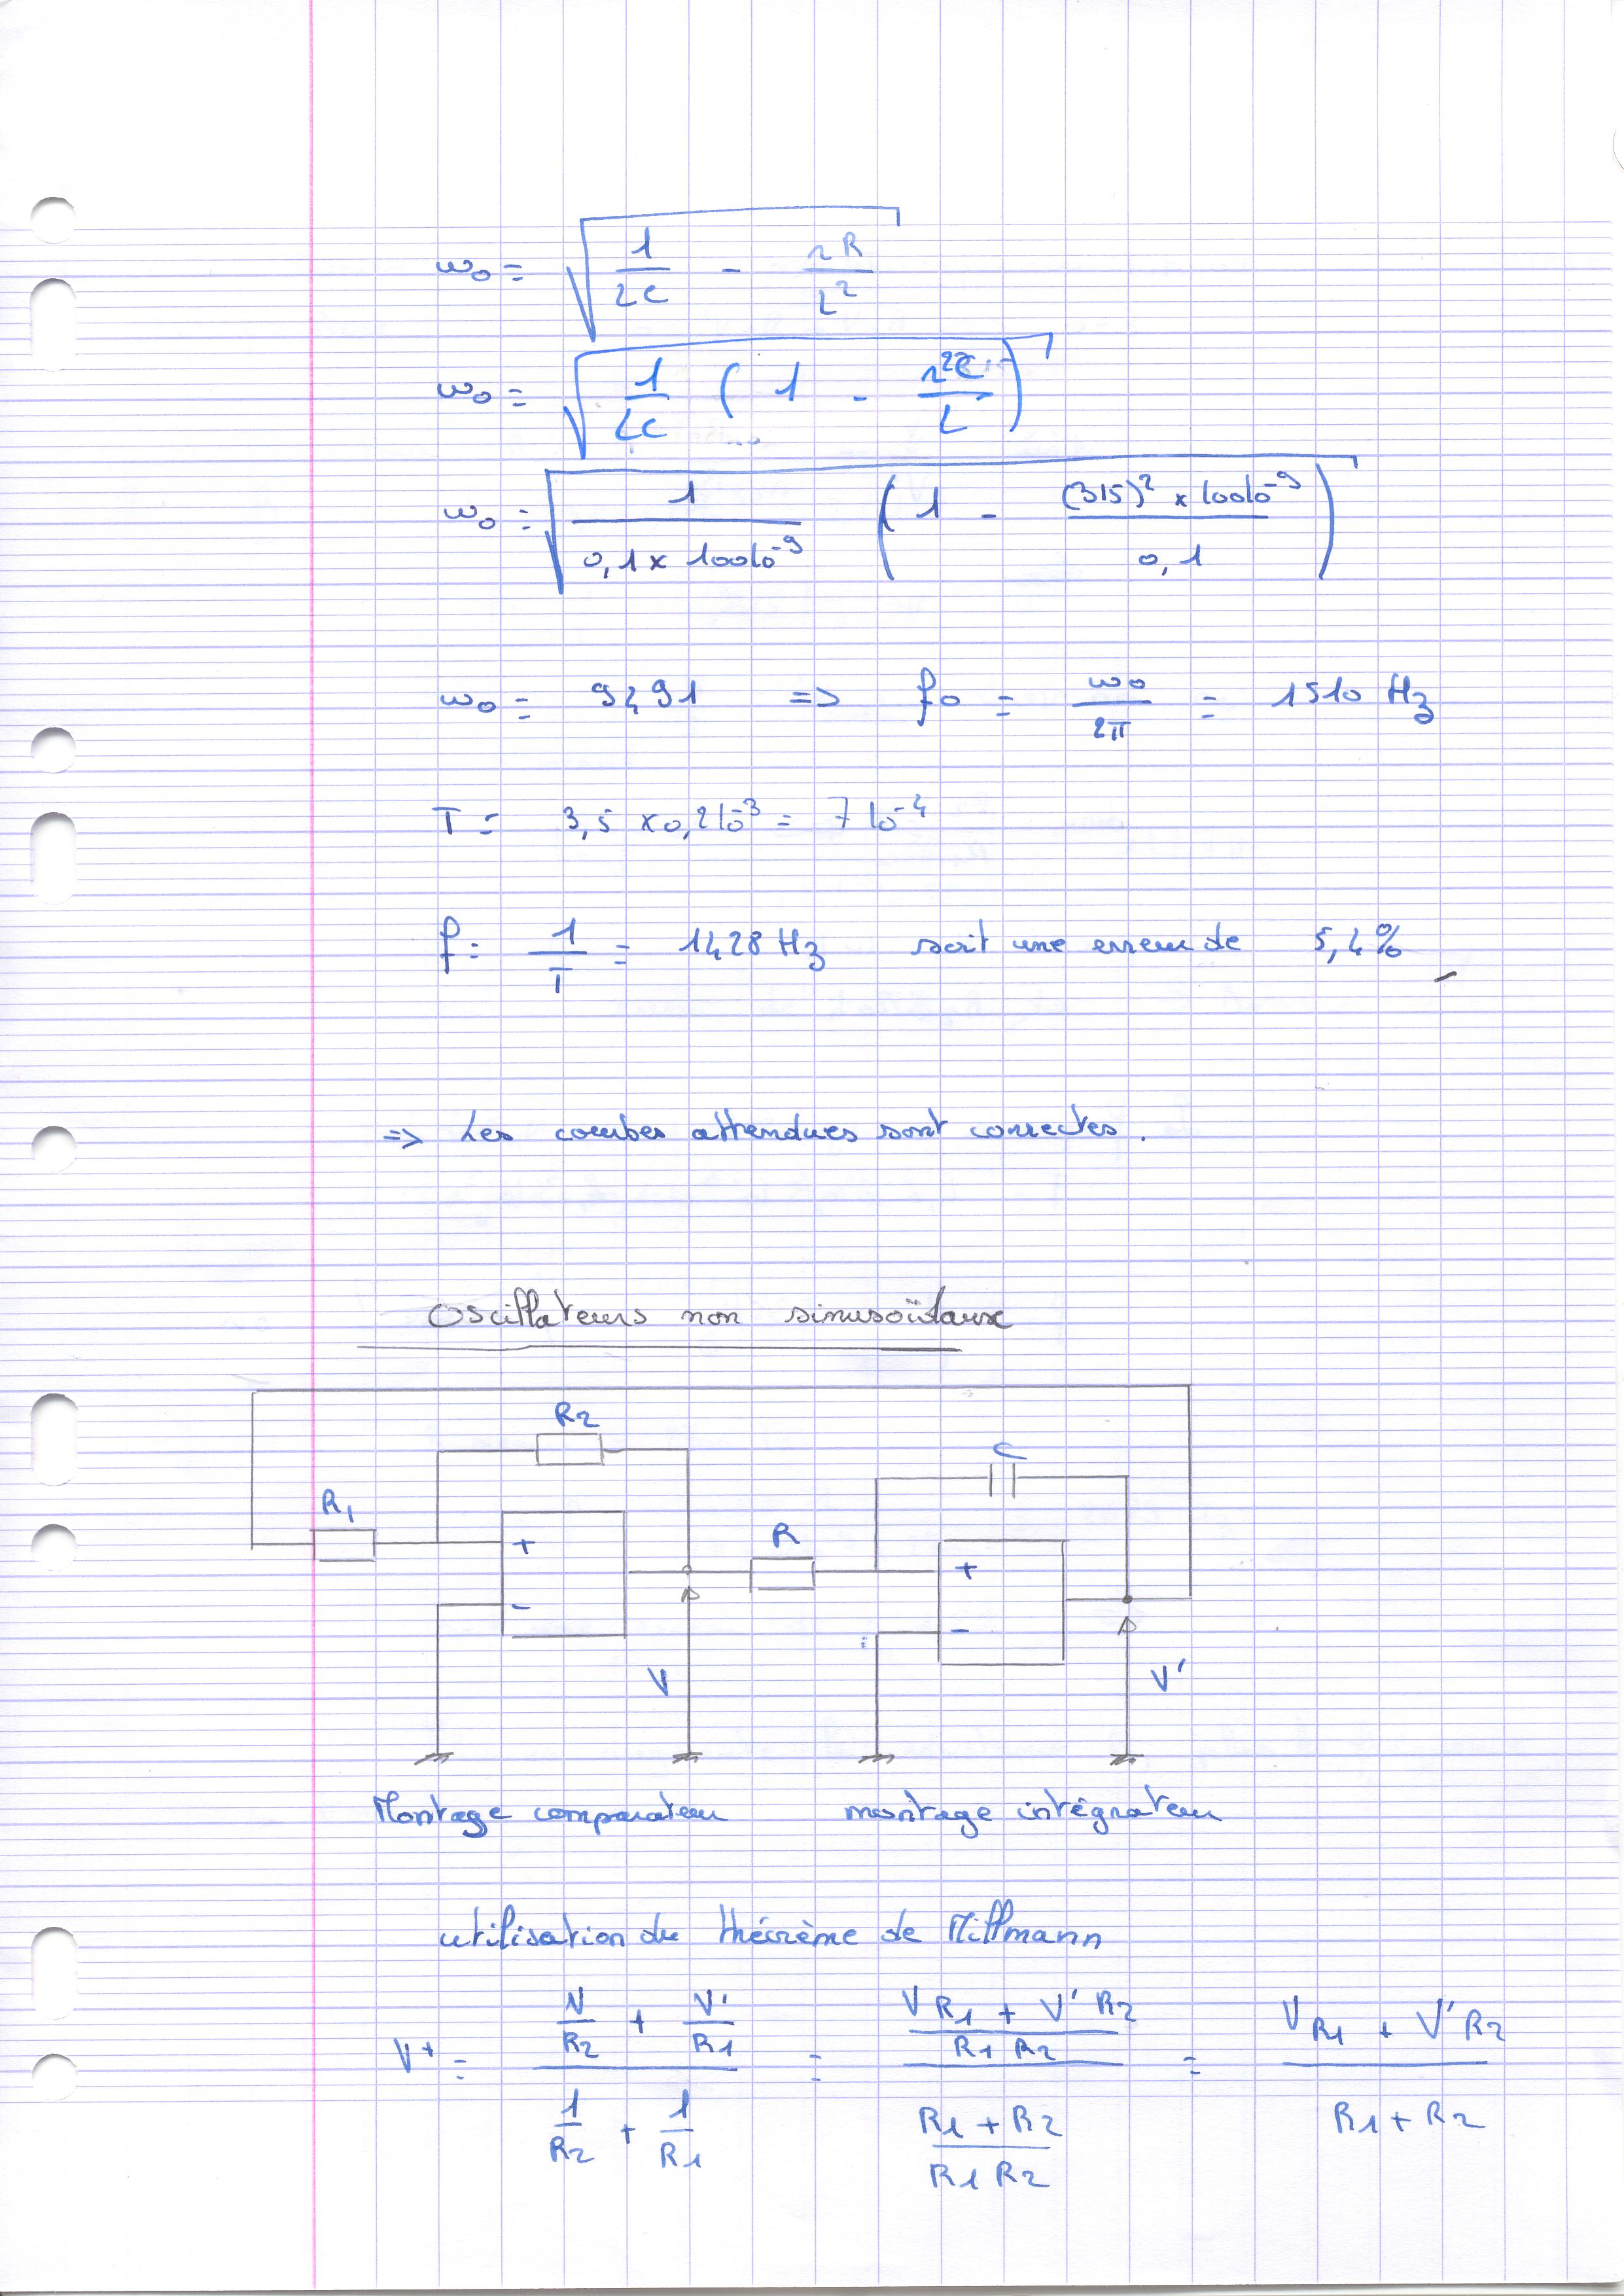 ω₀ = √( 1/LC - rR/L² )
ω₀ = √( 1/LC ( 1 - r²C/L ) )
ω₀ = √( 1/(0,1 × 100 10⁻⁹) ( 1 - ((315)² × 100 10⁻⁹)/0,1 ) )
ω₀ = 9491 => f₀ = ω₀/2π = 1510 Hz
T = 3,5 × 0,2 10⁻³ = 7 10⁻⁴
f = 1/T = 1428 Hz soit une erreur de 5,4%
=> Les courbes attendues sont correctes.
Oscillateurs non sinusoïdaux
R2
C
R1
R
+
+
-
-
V
V'
Montage comparateur montage intégrateur
utilisation du théorème de Millmann
V+ = (V/R2 + V'/R1)/(1/R2 + 1/R1) = ((V R1 + V' R2)/(R1 R2))/((R1 + R2)/(R1 R2)) = (V R1 + V' R2)/(R1 + R2)